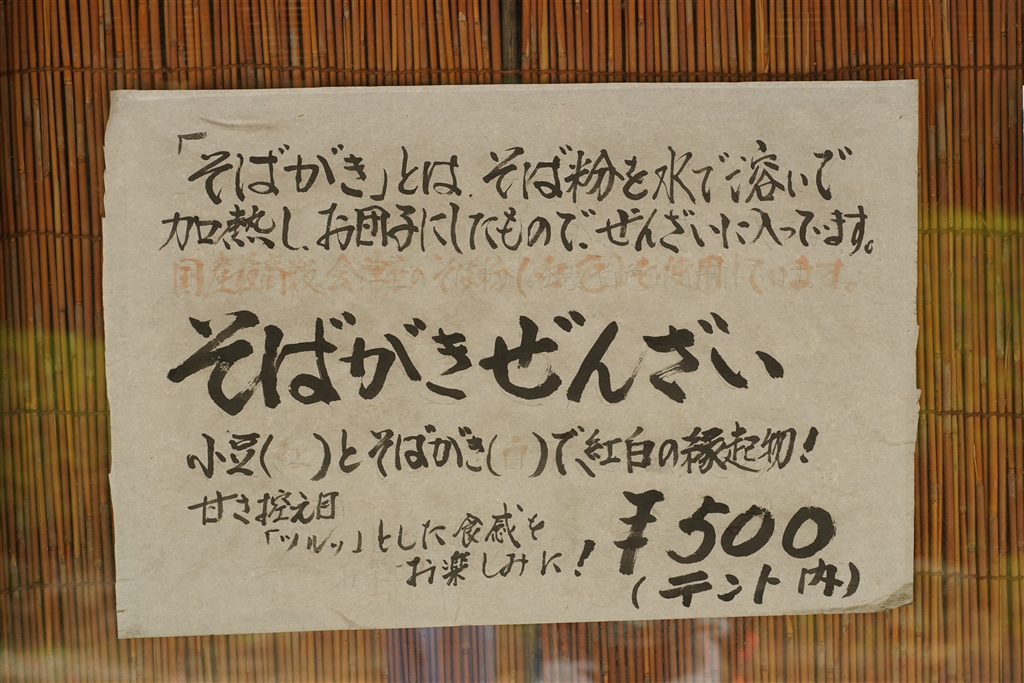 「そばがき」とは、そば粉を水で溶いで
加熱し、お団子にしたもので、ぜんざいに入っています。
国産 会津産のそば粉 を使用しています。
そばがきぜんざい
小豆(紅)とそばがき(白)で、紅白の縁起物!
甘さ控え目
「ツルッ」とした食感を
お楽しみに!
¥500
(テント内)